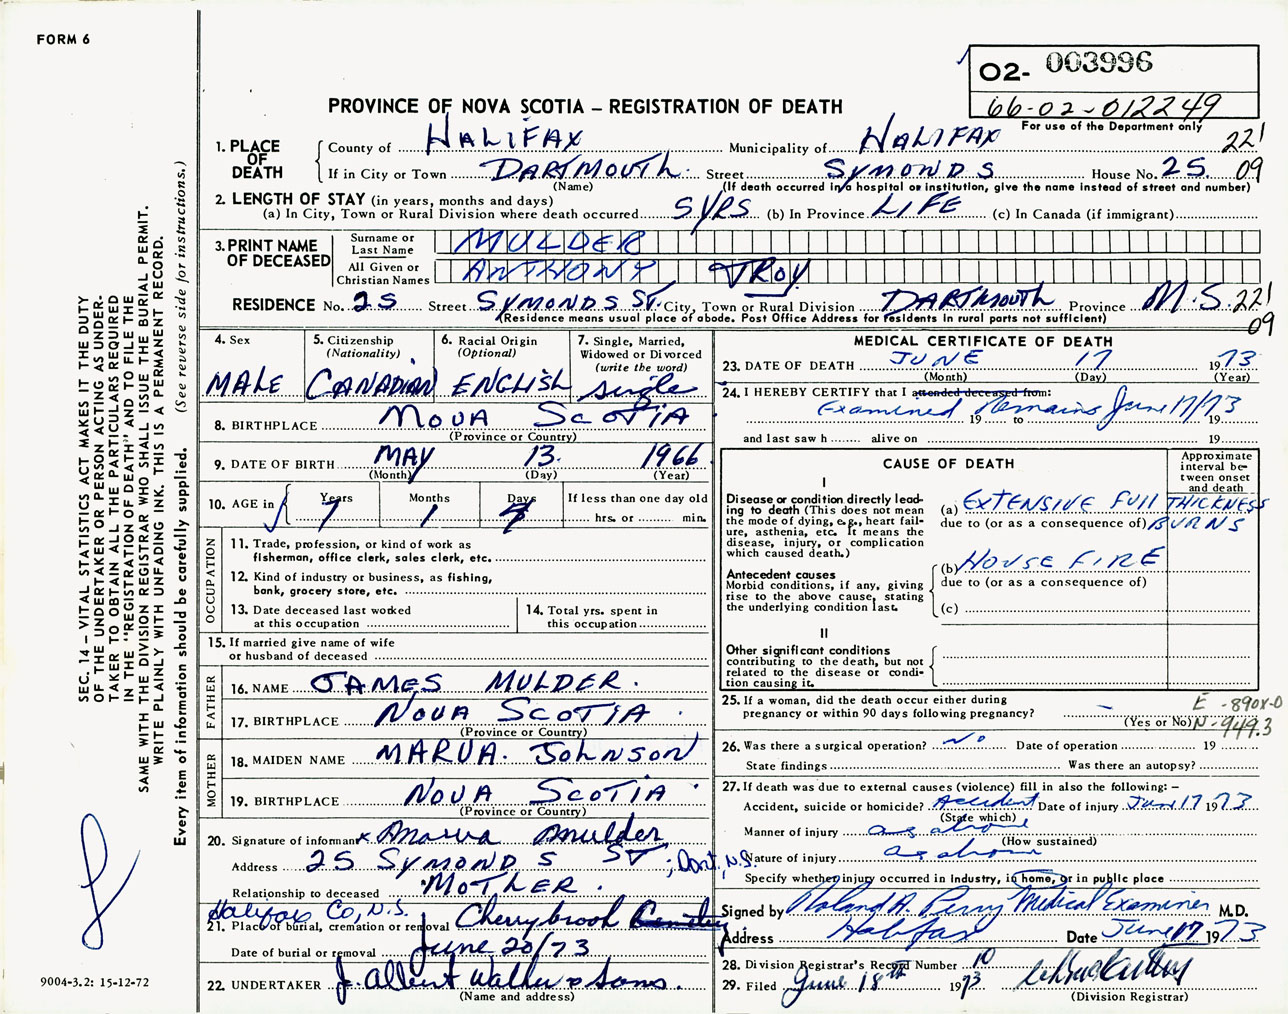 FORM 6
O2- 003996
66-02-012249
For use of the Department only
PROVINCE OF NOVA SCOTIA – REGISTRATION OF DEATH
1. PLACE OF DEATH
County of HALIFAX Municipality of HALIFAX 221
If in City or Town DARTMOUTH. Street SYMONDS House No. 25. 09
(Name) (If death occurred in a hospital or institution, give the name instead of street and number)
2. LENGTH OF STAY (in years, months and days)
(a) In City, Town or Rural Division where death occurred 5 YRS (b) In Province LIFE (c) In Canada (if immigrant)
3. PRINT NAME OF DECEASED
Surname or Last Name MULDER
All Given or Christian Names ANTHONY TROY
RESIDENCE No. 25 Street SYMONDS ST. City, Town or Rural Division DARTMOUTH Province N.S. 221
(Residence means usual place of abode. Post Office Address for residents in rural parts not sufficient) 09
4. Sex
MALE
5. Citizenship
(Nationality)
CANADIAN
6. Racial Origin
(Optional)
ENGLISH
7. Single, Married, Widowed or Divorced
(write the word)
single
8. BIRTHPLACE NOVA SCOTIA
(Province or Country)
9. DATE OF BIRTH MAY 13. 1966
(Month) (Day) (Year)
10. AGE in Years Months Days If less than one day old
7 1 hrs. or min.
OCCUPATION
11. Trade, profession, or kind of work as
fisherman, office clerk, sales clerk, etc.
12. Kind of industry or business, as fishing,
bank, grocery store, etc.
13. Date deceased last worked
at this occupation
14. Total yrs. spent in
this occupation
15. If married give name of wife
or husband of deceased
FATHER
16. NAME JAMES MULDER.
17. BIRTHPLACE NOVA SCOTIA
(Province or Country)
MOTHER
18. MAIDEN NAME MARVA. JOHNSON
19. BIRTHPLACE NOVA SCOTIA
(Province or Country)
20. Signature of informant x Marva Mulder
Address 25 SYMONDS ST; Dart, N.S.
Relationship to deceased MOTHER.
Halifax Co, N.S.
21. Place of burial, cremation or removal Cherrybrook
Date of burial or removal June 20/73
22. UNDERTAKER J. Albert Walker & Sons.
(Name and address)
MEDICAL CERTIFICATE OF DEATH
23. DATE OF DEATH JUNE 17 1973
(Month) (Day) (Year)
24. I HEREBY CERTIFY that I attended deceased from:
Examined Remains June 17/73
19 to 19
and last saw h alive on 19
CAUSE OF DEATH
Approximate interval between onset and death
I
Disease or condition directly leading to death (This does not mean the mode of dying, e.g., heart failure, asthenia, etc. It means the disease, injury, or complication which caused death.)
(a) EXTENSIVE FULL THICKNESS
due to (or as a consequence of) BURNS
Antecedent causes
Morbid conditions, if any, giving rise to the above cause, stating the underlying condition last.
(b) HOUSE FIRE
due to (or as a consequence of)
(c)
II
Other significant conditions
contributing to the death, but not related to the disease or condition causing it.
25. If a woman, did the death occur either during
pregnancy or within 90 days following pregnancy? –
(Yes or No)
E-890X-0
N-949.3
26. Was there a surgical operation? No Date of operation 19
State findings Was there an autopsy?
27. If death was due to external causes (violence) fill in also the following: –
Accident, suicide or homicide? Accident Date of injury Jun 17 1973
(State which)
Manner of injury as above
(How sustained)
Nature of injury as above
Specify whether injury occurred in industry, in home, or in public place
Signed by Roland A. Perry Medical Examiner M.D.
Address Halifax Date June 17 1973
28. Division Registrar's Record Number 10
29. Filed June 18th 1973
(Division Registrar)
SEC. 14 – VITAL STATISTICS ACT MAKES IT THE DUTY
OF THE UNDERTAKER OR PERSON ACTING AS UNDER-
TAKER TO OBTAIN ALL THE PARTICULARS REQUIRED
IN THE "REGISTRATION OF DEATH" AND TO FILE THE
SAME WITH THE DIVISION REGISTRAR WHO SHALL ISSUE THE BURIAL PERMIT.
WRITE PLAINLY WITH UNFADING INK. THIS IS A PERMANENT RECORD.
Every item of information should be carefully supplied. (See reverse side for instructions.)
9004-3.2: 15-12-72